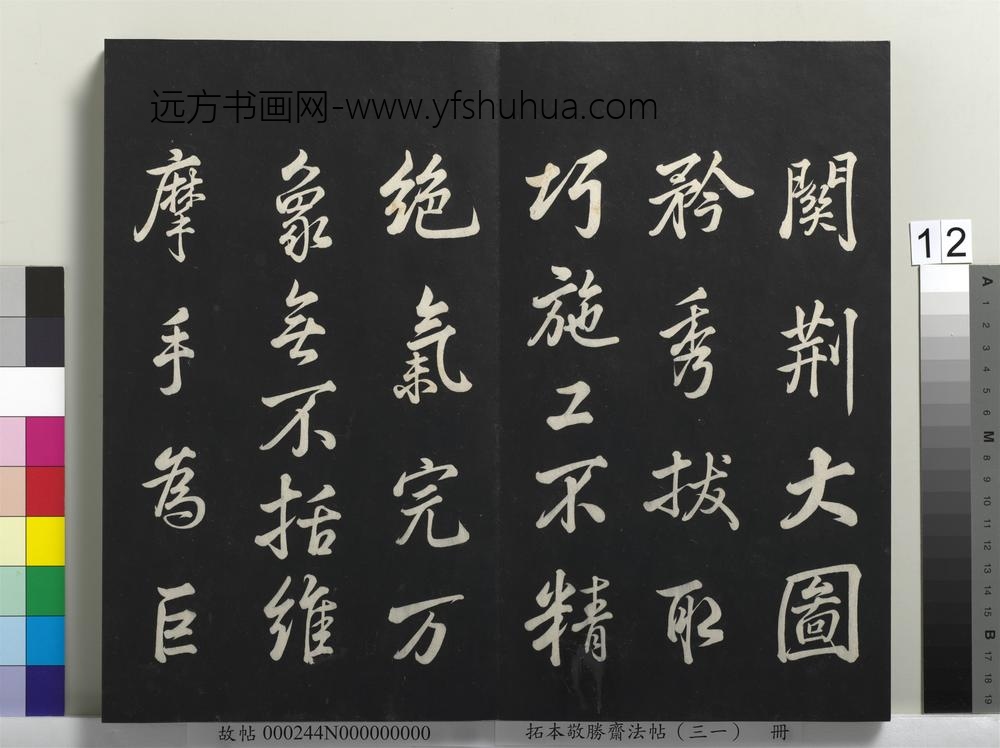 远方书画网-www.yfshuhua.com
關荆大圖
矜秀拔取
巧施工不精
絶氣完万
象無不括維
摩手為巨
12
A 1 2 3 4 5 6 M 8 9 10 11 12 13 14 15 B 17 18 19
故帖 000244N000000000
拓本敬勝齋法帖(三一) 册